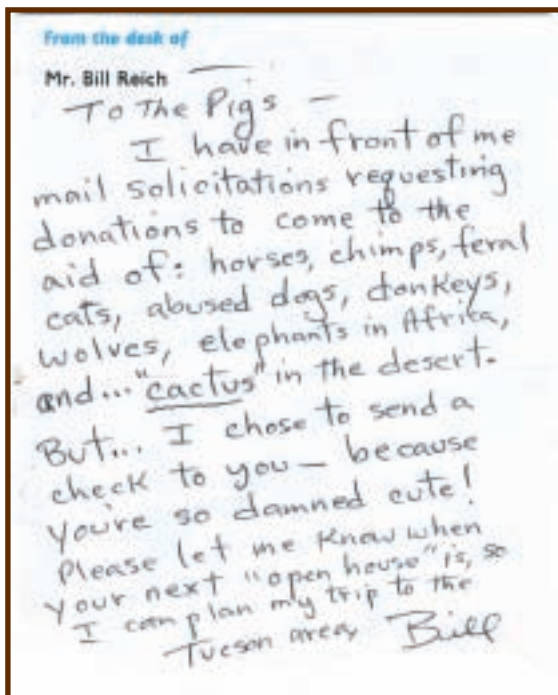 From the desk of
Mr. Bill Reich
To The Pigs —
I have in front of me
mail solicitations requesting
donations to come to the
aid of: horses, chimps, feral
cats, abused dogs, donkeys,
wolves, elephants in Africa,
and... "cactus" in the desert.
But... I chose to send a
check to you — because
you're so damned cute!
Please let me know when
your next "open house" is, so
I can plan my trip to the
Tucson area, Bill